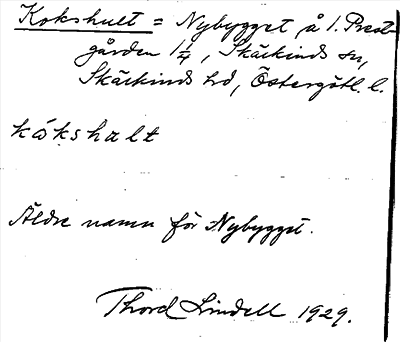 Kokshult = Nybygget å 1. Prest-
gården 1/4, Skärkinds sn,
Skärkinds hd, Östergötl. l.
kókshalt
Äldre namn för Nybygget.
Thord Lindell 1929.